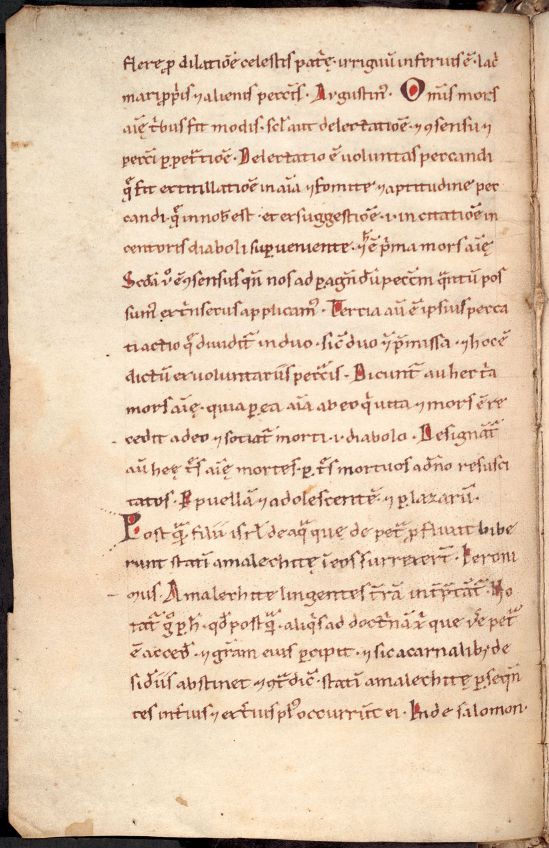 flere ꝓ dilatiōe celestis patr̄ę. irriguū inferius ē. lac̄
mari ꝓ ppͥis ⁊ alienis peccis̄. Augustinꝰ. Omīs mors
aīę tͥbus fit modis. scł aut delectatiōe. ⁊ ꝯsensu ⁊
pecci ꝑpetͣtiōe. Delectatio ē uoluntas peccandi
q̄ fit ex titillatiōe in aīa ⁊ fomite. ⁊ aptitudine pec
candi. q̄ in nob̄ est. et ex suggestiōe .i. incitatiōe in
centoris diaboli superueniente. hͨ ē pͥma mors aīę
Scd̄a ū ē ꝯsensus qn̄ nos ad ꝑagn̄dū pecc̄m qͣntū pos
sumꝰ extͥnsecus applicamꝰ. Tercia aū ē ipsius pecca
ti actio q̄ diuidit̄ in duo. sic̄ duo ⁊ pͥmissa. ⁊ hoc ē
dictū ex uoluntariis peccis̄. Dicunt̄ au hec tͥa
mors aīę. quia ꝑ ea aīa ab eo qͥ uita ⁊ mors ē re
cedit a deo ⁊ sociat̄ morti .i. diabolo. Designāt̄
aū heę tͥs aīę mortes. ꝑ tͥs mortuos a dn̄o resusci
tatos. ꝑ puellā. ⁊ adolescentē. ⁊ ꝑ lazarū.
Postqͣ filii isrł de aqͣ que de petͣ ꝓfluxit bibe
runt statī amalechitę ī eos surrexerт̄. Ieroni
mus. Amalechite lingentes tr̄ā intͥp̄tāt̄. No
tat̄ gͦ ꝑ hͨ. qd̄ postqͣ. aliqͥs ad doctͥnā xͥ que ūe petͣ
ē acced̄. ⁊ gr̄am eius ꝑcipit. ⁊ sic a carnalibꝫ de
sid̄iis abstinet ⁊ ꝯtͣdic̄. statī amalechitę ꝑseqn̄
tes intͥius ⁊ extͥius pl̄o occurrūt ei. Inde salomon.